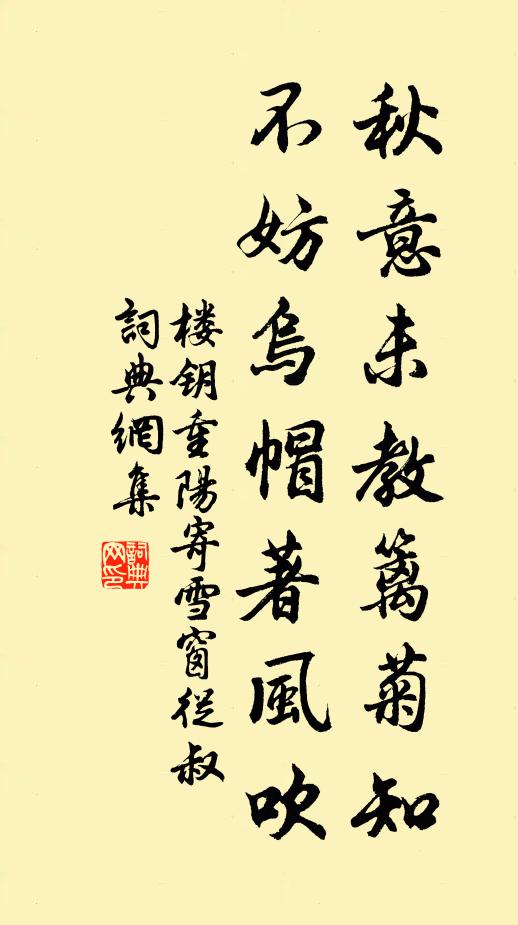 秋意未教籬菊知
不妨烏帽著風吹
楼鈅重陽寄雪窗從叔
詞典網集
詞典网印